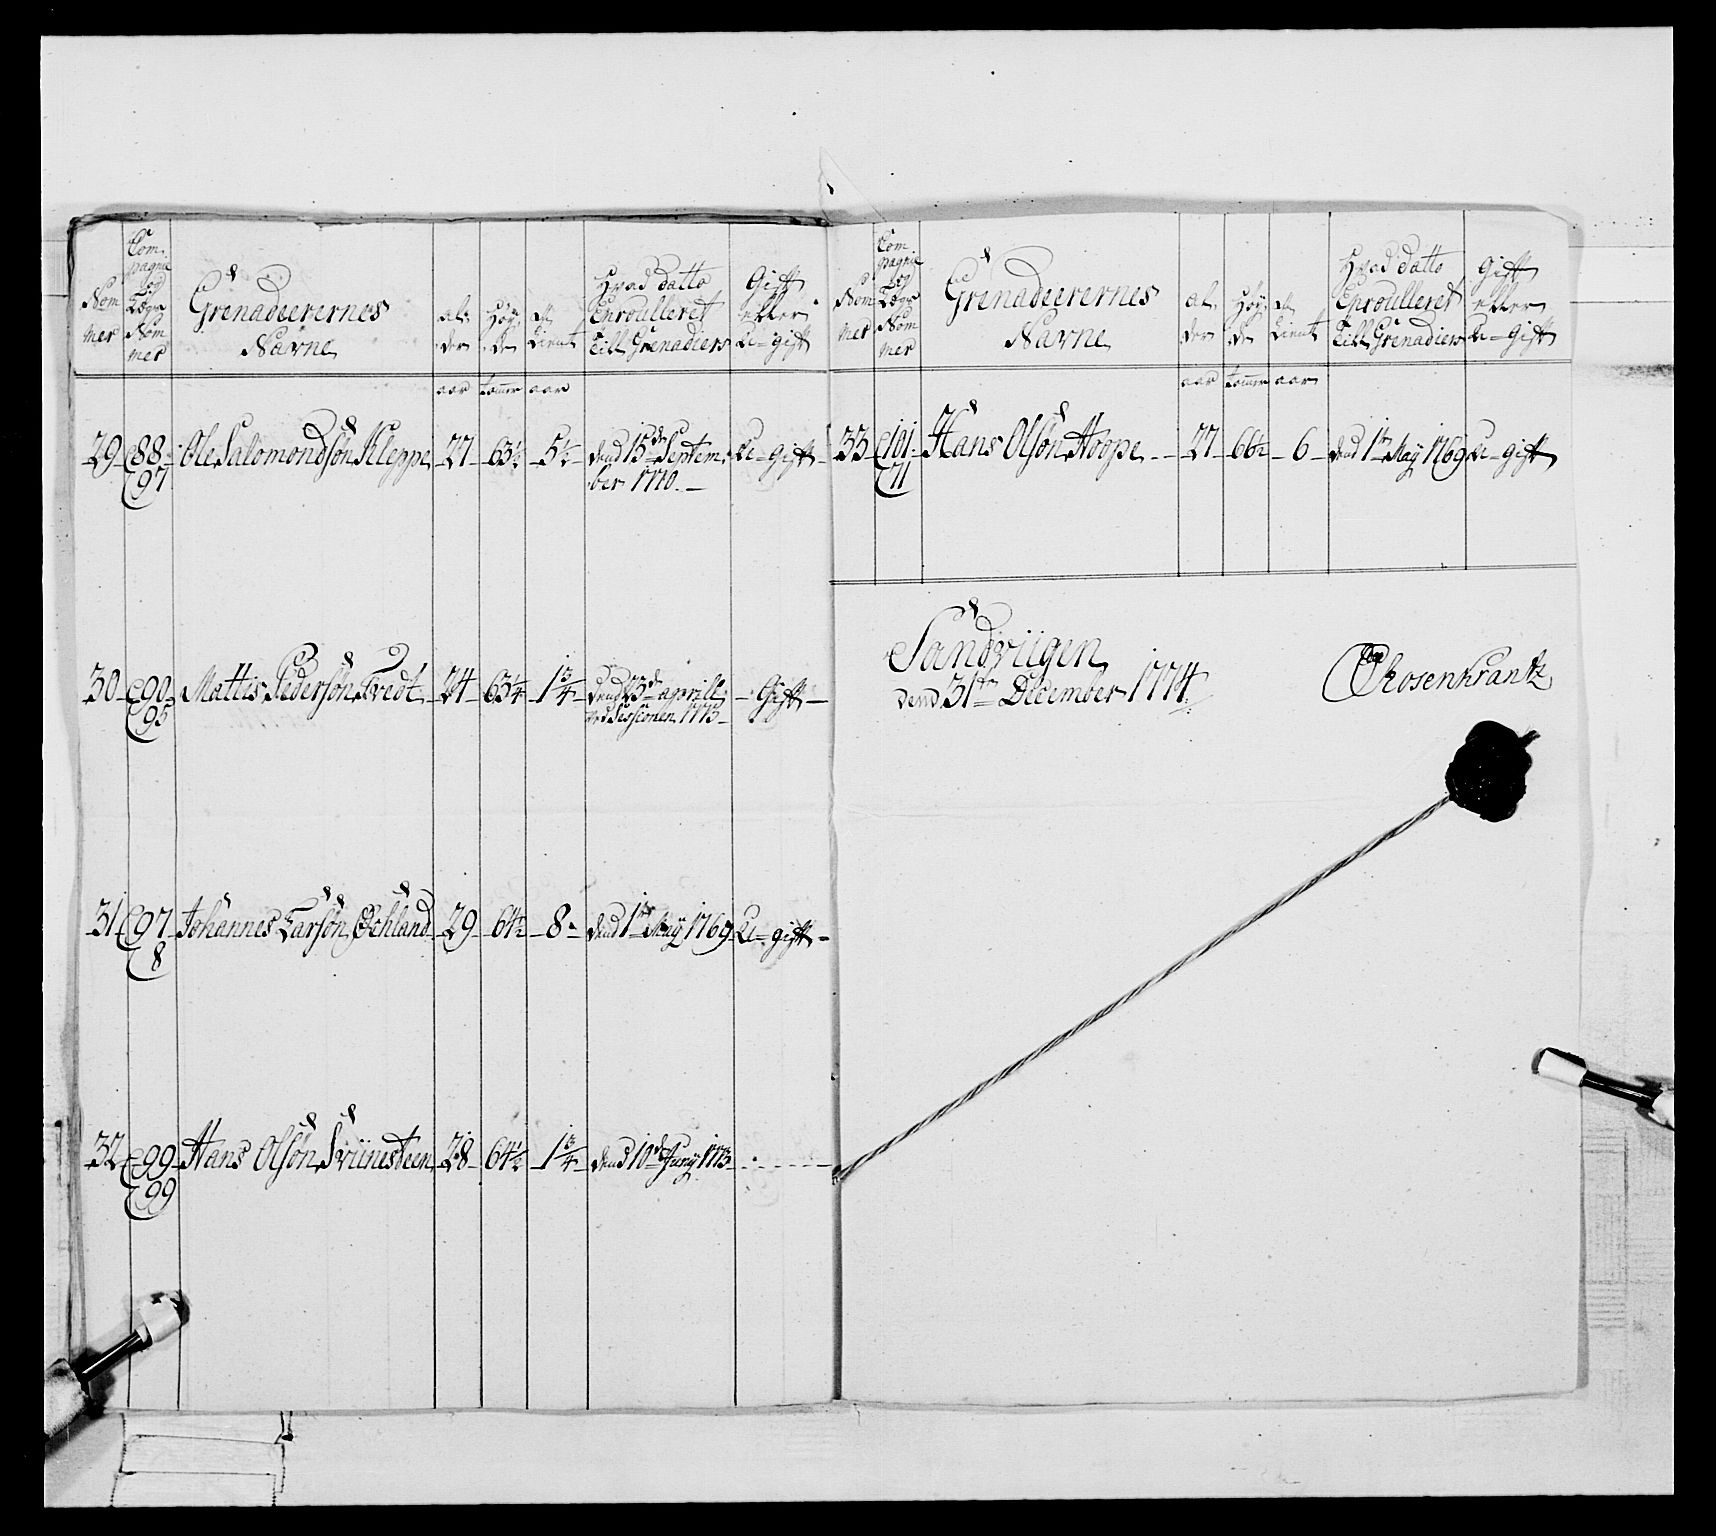 Nom
mer
Com-
pagnie
og
Lægs
Nom
mer
Grenadeerernes
Navne
al-
der
Høy-
de
Tient
Hvad datto
Enroulleret
Till Grenadiers
Gift
eller
U-gift
aar tommer aar
29 88 Ole Salomondsøn Kleppe 27 63½ 5½ dend 15de Septem- U-gift
97 ber 1770.
30 90 Mattis Pedersøn Tvedt 24 63¼ 1¾ dend 23de aprill Gift
95 ved Sessionen 1773
31 97 Johannes Larsøn Øchland 29 64½ 8 dend 1te May 1769 U-gift
8
32 99 Hans Olsøn Sviinesteen 28 64½ 1¾ dend 10de Juny 1773
99
Nom
mer
Com-
pagnie
og
Lægs
Nom
mer
Grenadeerernes
Navne
al-
der
Høy-
de
Tient
Hvad datto
Enroulleret
Till Grenadiers
Gift
eller
U-Gift
aar tommer aar
33 101 Hans Olsøn Hoope 27 66½ 6 dend 1te May 1769 U-gift
71
Sandviigen
dend 31te December 1774.
Rosenkrantz